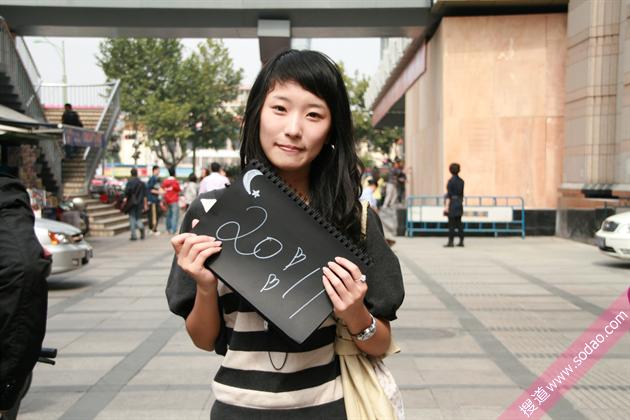 2011
搜道www.sodao.com